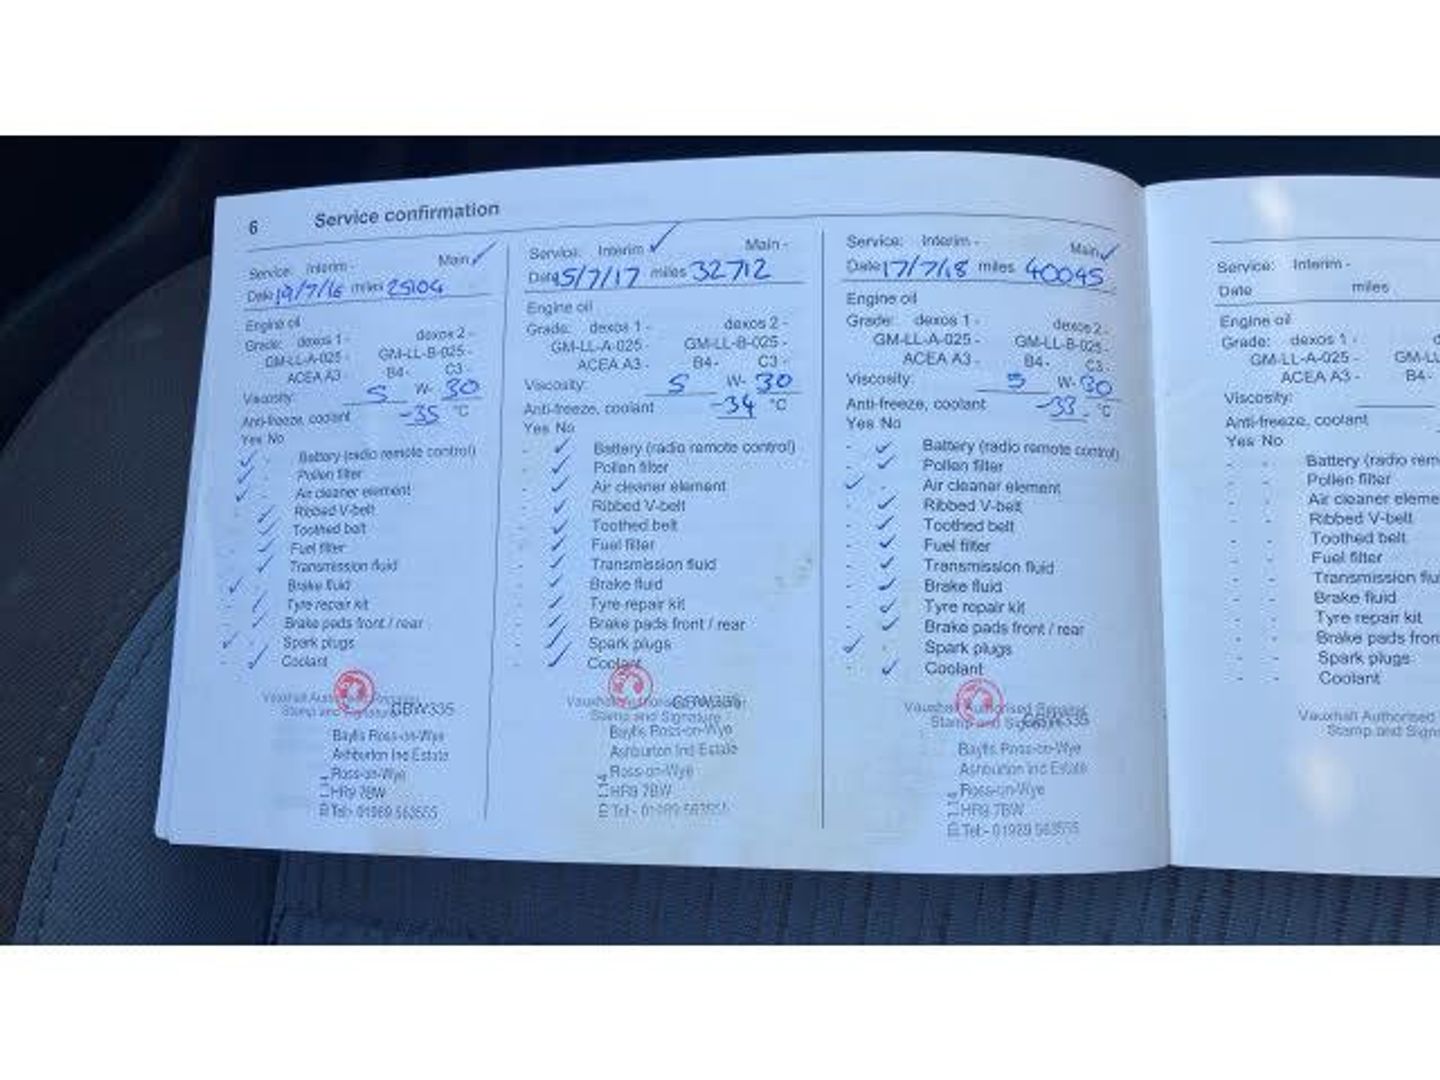 6 Service confirmation
Service: Interim - Main ✓
Date 19/7/16 miles 25104
Engine oil
Grade: dexos 1 - dexos 2 -
GM-LL-A-025 - GM-LL-B-025 -
ACEA A3 - B4 - C3 -
Viscosity: 5 W- 30
Anti-freeze, coolant -35 °C
Yes No
✓ - Battery (radio remote control)
✓ - Pollen filter
✓ - Air cleaner element
- ✓ Ribbed V-belt
- ✓ Toothed belt
- ✓ Fuel filter
- ✓ Transmission fluid
✓ - Brake fluid
- ✓ Tyre repair kit
- ✓ Brake pads front / rear
✓ - Spark plugs
- ✓ Coolant
Vauxhall Authorised Repairer
Stamp and Signature GBW335
Baylis Ross-on-Wye
Ashburton Ind Estate
Ross-on-Wye
HR9 7BW
Tel:- 01989 563555
Service: Interim ✓ Main -
Date 15/7/17 miles 32712
Engine oil
Grade: dexos 1 - dexos 2 -
GM-LL-A-025 - GM-LL-B-025 -
ACEA A3 - B4 - C3 -
Viscosity: 5 W- 30
Anti-freeze, coolant -34 °C
Yes No
- ✓ Battery (radio remote control)
- ✓ Pollen filter
- ✓ Air cleaner element
- ✓ Ribbed V-belt
- ✓ Toothed belt
- ✓ Fuel filter
- ✓ Transmission fluid
- ✓ Brake fluid
- ✓ Tyre repair kit
- ✓ Brake pads front / rear
- ✓ Spark plugs
- ✓ Coolant
Vauxhall Authorised Repairer
GBW335
Stamp and Signature
Baylis Ross-on-Wye
Ashburton Ind Estate
Ross-on-Wye
HR9 7BW
Tel:- 01989 563555
Service: Interim - Main ✓
Date 17/7/18 miles 40045
Engine oil
Grade: dexos 1 - dexos 2 -
GM-LL-A-025 - GM-LL-B-025 -
ACEA A3 - B4 - C3 -
Viscosity: 5 W- 30
Anti-freeze, coolant -33 °C
Yes No
- ✓ Battery (radio remote control)
- ✓ Pollen filter
✓ - Air cleaner element
- ✓ Ribbed V-belt
- ✓ Toothed belt
- ✓ Fuel filter
- ✓ Transmission fluid
- ✓ Brake fluid
- ✓ Tyre repair kit
- ✓ Brake pads front / rear
✓ - Spark plugs
- ✓ Coolant
Vauxhall Authorised Repairer
Stamp and Signature GBW335
Baylis Ross-on-Wye
Ashburton Ind Estate
Ross-on-Wye
HR9 7BW
Tel:- 01989 563555
Service: Interim -
Date miles
Engine oil
Grade: dexos 1 - d
GM-LL-A-025 - GM-LL
ACEA A3 - B4 -
Viscosity:
Anti-freeze, coolant
Yes No
- - Battery (radio rem
- - Pollen filter
- - Air cleaner eleme
- - Ribbed V-belt
- - Toothed belt
- - Fuel filter
- - Transmission flu
- - Brake fluid
- - Tyre repair kit
- - Brake pads fron
- - Spark plugs
- - Coolant
Vauxhall Authorised
Stamp and Sign